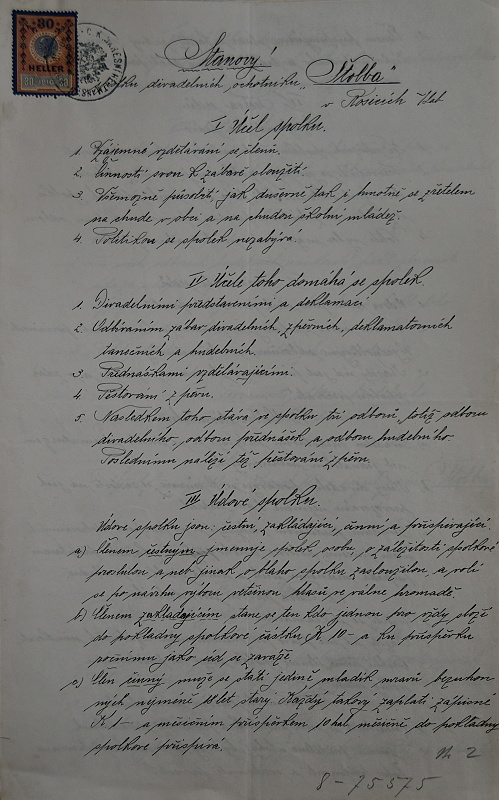 30
HELLER
30 1910 30
Stanovy
spolku divadelních ochotníků „Stolba“
v Rosicích
I Účel spolku.
1. Vzájemné vzdělávání se členů.
2. Činností svou k zábavě sloužiti.
3. Všemožně působiti jak duševně tak i hmotně se zřetelem
na chudé v obci a na chudou školní mládež.
4. Politikou se spolek nezabývá
II Účele toho domáhá se spolek.
1. Divadelními představeními a deklamací
2. Odbíráním zábav divadelních, zpěvních, deklamatorních
tanečních a hudebních.
3 Přednáškami vzdělávajícími.
4 Pěstování zpěvu.
5. Následkem toho stává ve spolku tří odborů, totiž odboru
divadelního, odboru přednášek a odboru hudebního.
Poslednímu náleží též pěstování zpěvu.
III Údové spolku.
Údové spolku jsou: čestní, zakládající, činní a přispívající
a) Členem čestným jmenuje spolek osobu, o záležitosti spolkové
proslulou a neb jinak o blaho spolku zasloužilou, a volí
se po návrhu výboru většinou hlasů ve valné hromadě
b) Členem zakládajícím stane se ten kdo jednou pro vždy složí
do pokladny spolkové částku K 10- a ku příspěvku
ročnímu jako úd se zaváže
c) Člen činný může se státi jedině mladík mravů bezúhon
ných nejméně 18 let starý. Každý takový zaplatí zápisné
K 1- a měsíčním příspěvkem 10 hal. měsíčně do pokladny
spolkové přispívá.
2
S-75575